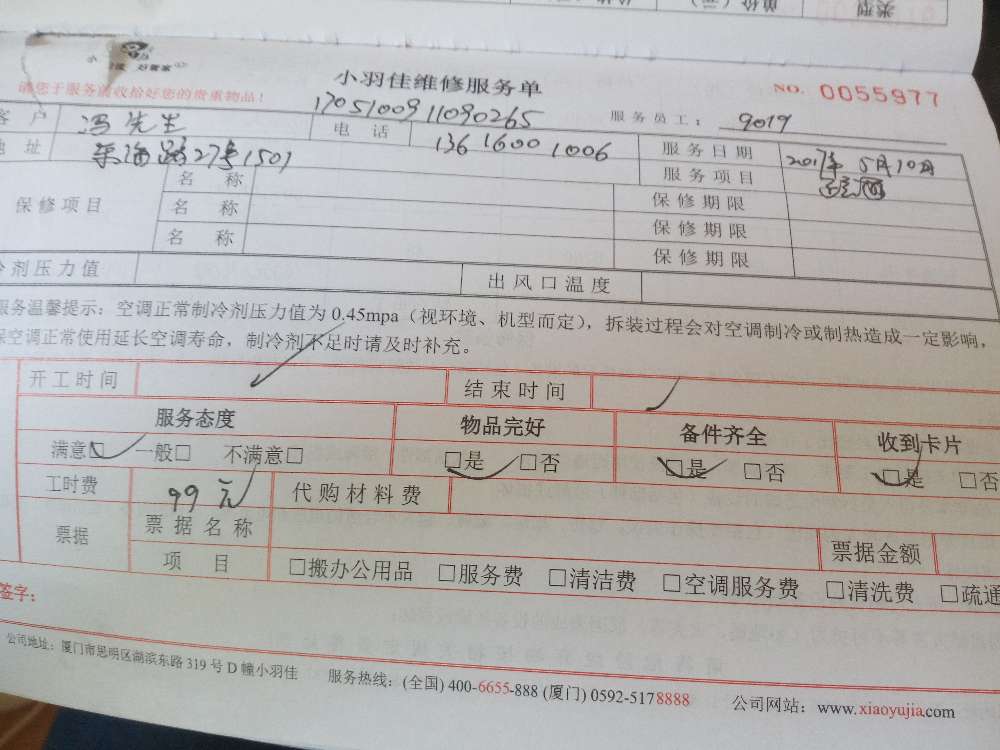 类型
单价（元）
小羽佳维修服务单
NO. 0055977
请您于服务前收拾好您的贵重物品！
1705100911090265
服务员工： 9019
客户 冯先生 电话 13616001006 服务日期 2017年5月10日
地址 东海路27号1501 服务项目
保修项目 名称 保修期限
名称 保修期限
名称 保修期限
冷剂压力值 出风口温度
服务温馨提示：空调正常制冷剂压力值为 0.45mpa（视环境、机型而定），拆装过程会对空调制冷或制热造成一定影响，
保空调正常使用延长空调寿命，制冷剂不足时请及时补充。
开工时间 结束时间
服务态度 物品完好 备件齐全 收到卡片
满意□ 一般□ 不满意□ □是 □否 □是 □否 □是 □否
工时费 99元 代购材料费
票据 票据名称 票据金额
项目 □搬办公用品 □服务费 □清洁费 □空调服务费 □清洗费 □疏通
签字：
公司地址：厦门市思明区湖滨东路 319 号 D 幢小羽佳 服务热线：(全国) 400-6655-888 (厦门) 0592-5178888 公司网站：www.xiaoyujia.com